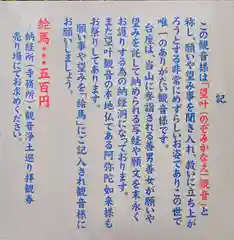 記
この観音様は「望叶(のぞみかなえ)観音」と
称し、願いや望み事を聞き入れ、救いに立ち上が
ろうとする非常にめずらしいお姿でありこの世で
唯一のありがたい観音様です。
台座は、当山に参詣される善男善女が願いや
望みを託して納められる写経や願文を末永く
お護りする為の納経洞になっております。
また望叶観音の本地仏である阿弥陀如来様も
お祭りしてあります。
願い事や望みを「絵馬」にご記入され観音様に
お願いしましょう。
絵馬・・・五百円
納経所(寺務所)・観音浄土巡り拝観券
売り場にてお求めください。